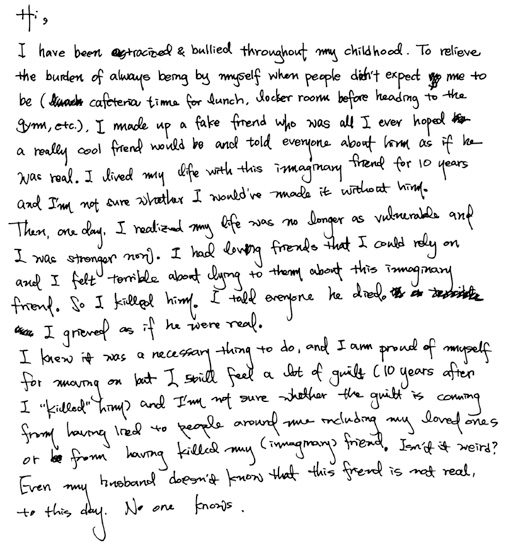 Hi,
I have been ostracized & bullied throughout my childhood. To relieve
the burden of always being by myself when people didn't expect me to
be (cafeteria time for lunch, locker room before heading to the
gym, etc.), I made up a fake friend who was all I ever hoped
a really cool friend would be and told everyone about him as if he
was real. I lived my life with this imaginary friend for 10 years
and I'm not sure whether I would've made it without him.
Then, one day, I realized my life was no longer as vulnerable and
I was stronger now. I had loving friends that I could rely on
and I felt terrible about lying to them about this imaginary
friend. So I killed him. I told everyone he died.
I grieved as if he were real.
I knew it was a necessary thing to do, and I am proud of myself
for moving on but I still feel a lot of guilt (10 years after
I "killed" him) and I'm not sure whether the guilt is coming
from having lied to people around me including my loved ones
or from having killed my (imaginary) friend. Isn't it weird?
Even my husband doesn't know that this friend is not real,
to this day. No one knows.